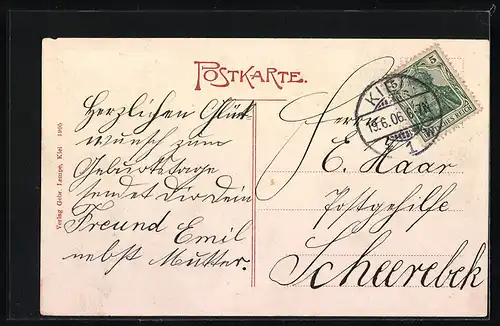 POSTKARTE.
Herzlichen Glück
wunsch zum
Geburtstage
sendet Dir Dein
Freund Emil
nebst Mutter.
Herrn
E. Haar
Postgehilfe
Scheerebek
KIEL
19.6.06. 6-7N
1
5
Verlag Gebr. Lempe, Kiel 1905